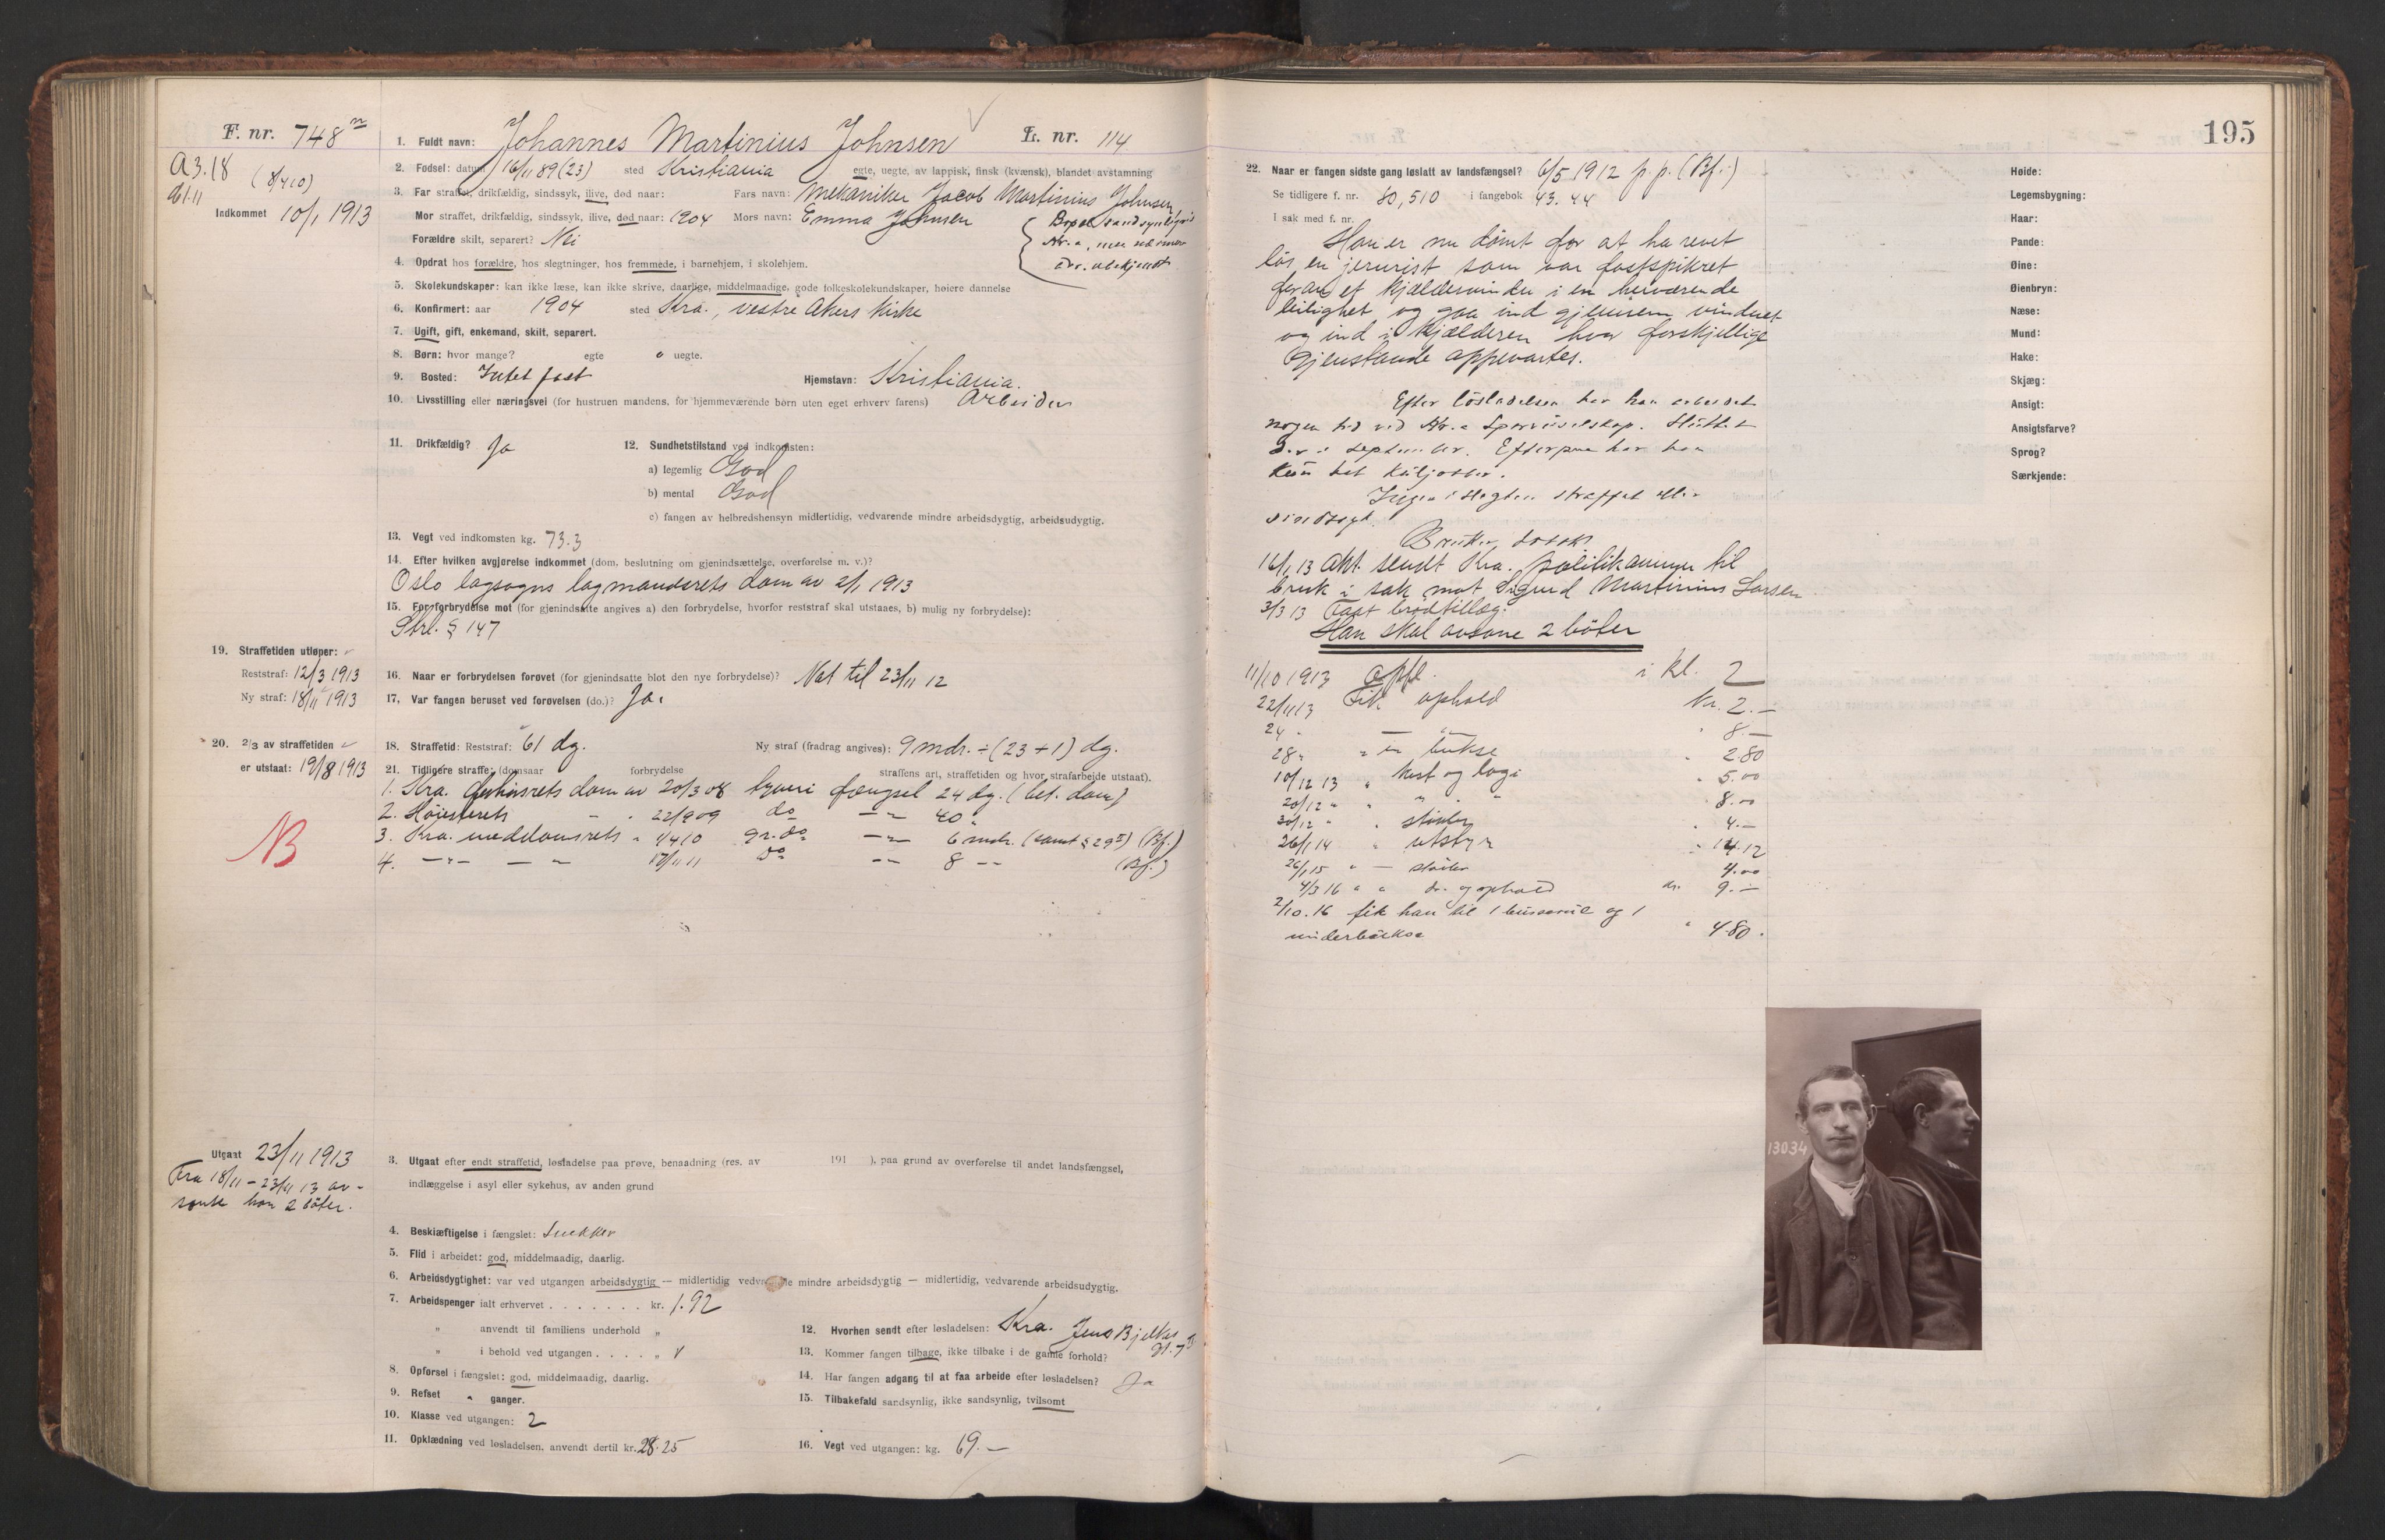 F. nr. 748
A3.18
(8/410)
Indkommet 10/1 1913
1. Fuldt navn: Johannes Martinius Johnsen L. nr. 114
2. Fødsel: datum 16/11 89 (23) sted Kristiania egte, uegte, av lappisk, finsk (kvænsk), blandet avstamning
3. Far straffet, drikfældig, sindssyk, ilive, død naar: Fars navn: Mekaniker Jacob Martinius Johnsen
Mor straffet, drikfældig, sindssyk, ilive, død naar: 1904 Mors navn: Emma Johnsen
Bopæl sandsynligvis
Kr.a, men nærmere
adr. ubekjendt
Forældre skilt, separert? Nei
4. Opdrat hos forældre, hos slegtninger, hos fremmede, i barnehjem, i skolehjem.
5. Skolekundskaper: kan ikke læse, kan ikke skrive, daarlige, middelmaadige, gode folkeskolekundskaper, høiere dannelse
6. Konfirmert: aar 1904 sted Kra., vestre Akers kirke
7. Ugift, gift, enkemand, skilt, separert.
8. Børn: hvor mange? egte uegte.
9. Bosted: Intet fast Hjemstavn: Kristiania.
10. Livsstilling eller næringsvei (for hustruen mandens, for hjemmeværende børn uten eget erhverv farens) Arbeider
11. Drikfældig? Ja
12. Sundhetstilstand ved indkomsten:
a) legemlig God
b) mental God
c) fangen av helbredshensyn midlertidig, vedvarende mindre arbeidsdygtig, arbeidsudygtig.
13. Vegt ved indkomsten kg. 73.3
14. Efter hvilken avgjørelse indkommet (dom, beslutning om gjenindsættelse, overførelse m. v.)?
Oslo lagsogns lagmandsrets dom av 2/1 1913
15. For forbrydelse mot (for gjenindsatte angives a) den forbrydelse, hvorfor reststraf skal utstaaes, b) mulig ny forbrydelse):
Strl. § 147
19. Straffetiden utløper:
Reststraf: 12/3 1913
Ny straf: 18/11 1913
16. Naar er forbrydelsen forøvet (for gjenindsatte blot den nye forbrydelse)? Nat til 23/11 12
17. Var fangen beruset ved forøvelsen (do.)? Ja.
20. 2/3 av straffetiden
er utstaat: 19/8 1913
18. Straffetid: Reststraf: 61 dg. Ny straf (fradrag angives): 9 mdr. ÷ (23 + 1) dg.
21. Tidligere straffe: (domsaar forbrydelse straffens art, straffetiden og hvor strafarbeide utstaat).
1. Kra. dom av 20/3 08 tyveri fængsel 24 dg. (bet. dom)
2. Høiesterets - - 22/9 09 do -"- 40 "
3. Kra. meddomsrets " 1/4 10 gr. do -"- 6 mdr. (samt § 29) (Bf.)
4. -"- - " 17/11 11 do -"- 8 -- (Bf.)
NB
Utgaat 23/11 1913
Fra 18/11 - 23/11 13 av-
sonte han 2 bøter.
3. Utgaat efter endt straffetid, løsladelse paa prøve, benaadning (res. av 191 ), paa grund av overførelse til andet landsfængsel,
indlæggelse i asyl eller sykehus, av anden grund
4. Beskjæftigelse i fængslet: Snekker
5. Flid i arbeidet: god, middelmaadig, daarlig.
6. Arbeidsdygtighet: var ved utgangen arbeidsdygtig — midlertidig vedvarende mindre arbeidsdygtig — midlertidig, vedvarende arbeidsudygtig.
7. Arbeidspenger ialt erhvervet . . . . . . . kr. 1.92
" anvendt til familiens underhold "
" i behold ved utgangen . . . . . "
8. Opførsel i fængslet: god, middelmaadig, daarlig.
9. Refset ganger.
10. Klasse ved utgangen: 2
11. Opklædning ved løsladelsen, anvendt dertil kr. 28.25
12. Hvorhen sendt efter løsladelsen: Kra. Jens Bjelkes
gt. 7
13. Kommer fangen tilbage, ikke tilbake i de gamle forhold?
14. Har fangen adgang til at faa arbeide efter løsladelsen? Ja
15. Tilbakefald sandsynlig, ikke sandsynlig, tvilsomt
16. Vegt ved utgangen: kg. 69.—
195
22. Naar er fangen sidste gang løslatt av landsfængsel? 6/5 1912 p.p. (Bf.)
Se tidligere f. nr. 80,510 i fangebok 43. 44
I sak med f. nr.
Han er nu dømt for at ha revet
løs en jernrist som var fastspikret
foran et kjældervindu i en herværende
leilighet og gaa ind gjennem vinduet
og ind i kjælderen hvor forskjellige
gjenstande oppevartes.
Efter løsladelsen har han arbeidet
nogen tid ved Kr.a Sporveisselskap. Sluttet
der i september. Efterpaa har han
kun hat
Ingen i slegten straffet eller
sindssyk.
16/1 13 Akt. sendt Kra. politikammer til
bruk i sak mot Sigurd Martinius Larsen
3/3 13 Faat brødtillæg.
Han skal avsone 2 bøter
11/10 1913 Opfl. i kl. 2
22/11 13 Fik ophold Kr. 2.—
24 " — " 8 —
28 " " en bukse " 2.80
10/12 13 " kost og logi " 5.00
20/12 " " " " 8.00
30/12 " " støvler " 4.—
26/1 14 " utstyr " 14.12
26/1 15 " — støvler 4.00
4/3 16 " " do. og ophold kr. 9.—
2/10. 16 fik han til 1 busserul og 1
underbukse " 4.80.
Høide:
Legemsbygning:
Haar:
Pande:
Øine:
Øienbryn:
Næse:
Mund:
Hake:
Skjæg:
Ansigt:
Ansigtsfarve?
Sprog?
Særkjende:
13034